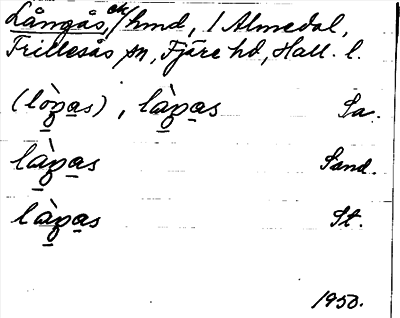 Långås, ek/hmd, / Almedal,
Frillesås sn, Fjäre hd, Hall. l.
(lòŋas), làŋas Sa.
làŋas Sand.
làŋas St.
1950.